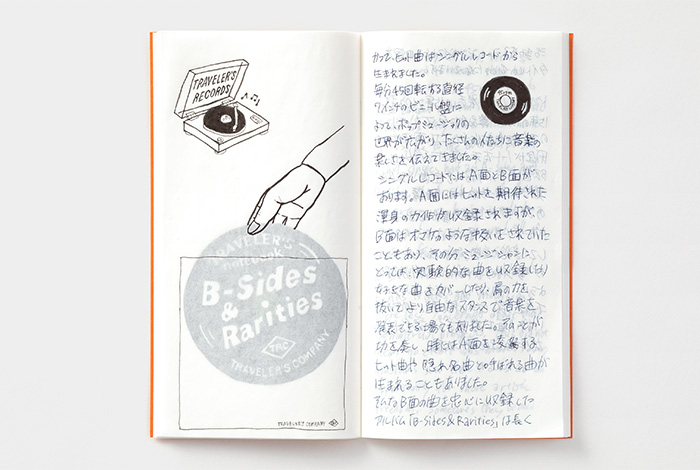 TRAVELER'S
RECORDS
TRAVELER'S
notebook
B-Sides
&
Rarities
TRC
TRAVELER'S COMPANY
TRAVELER'S COMPANY
かつて、ヒット曲はシングルレコードから
生まれました。
毎分45回転する直径
7インチのビニール盤に
よって、ポップミュージックの
世界が広がり、たくさんの人たちに音楽の
楽しさを伝えてきました。
シングルレコードにはA面とB面が
あります。A面にはヒットを期待された
渾身の力作が収録されますが、
B面はオマケのような扱いをされていた
こともあり、その分ミュージシャンに
とっては、実験的な曲を収録したり
好きな曲をカバーしたり、肩の力を
抜いてより自由なスタンスで音楽を
発表できる場でもありました。そんなことが
功を奏し、時にはA面を凌駕する
ヒット曲や隠れ名曲と呼ばれる曲が
生まれることもありました。
そんなB面の曲を中心に収録した
アルバム「B-Sides & Rarities」は長く